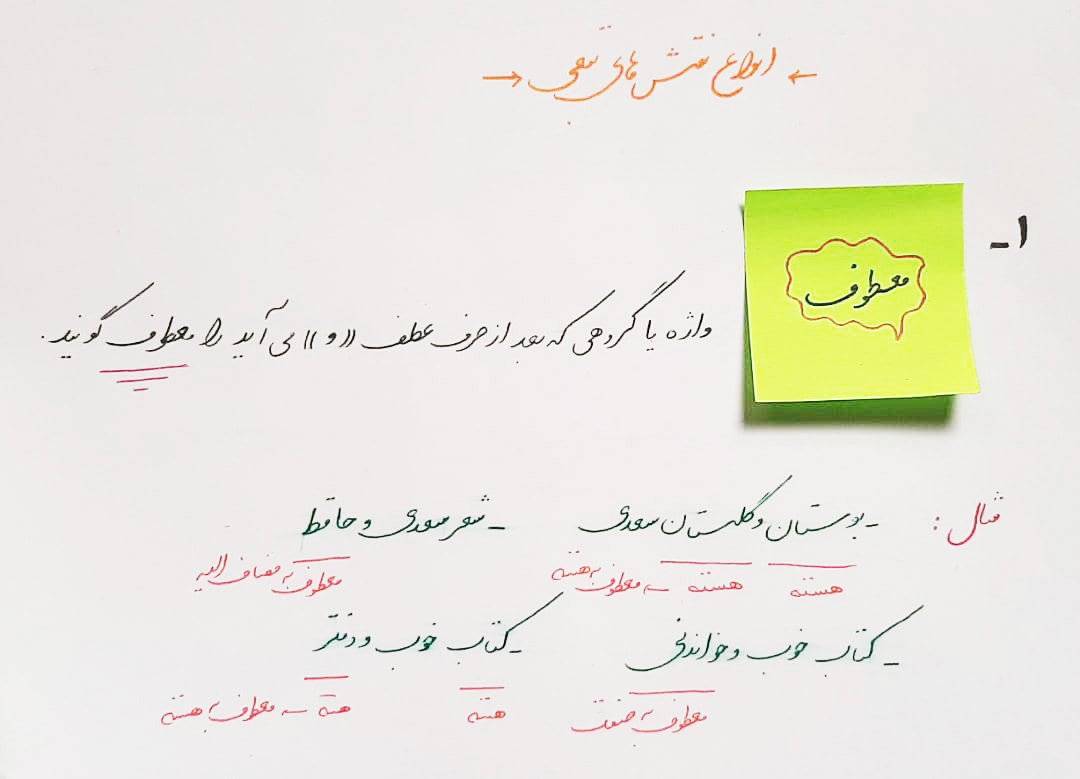 ← انواع نقش های تبعی →
۱-
معطوف
واژه یا گروهی که بعد از حرف عطف «و» می آید را معطوف گویند.
مثال :
- بوستان و گلستان سعدی
هسته
هسته ← معطوف به هسته
- شعر سعدی و حافظ
معطوف به مضاف الیه
- کتاب خوب و خواندنی
معطوف به صفت
- کتاب خوب و دفتر
هسته
هسته ← معطوف به هسته